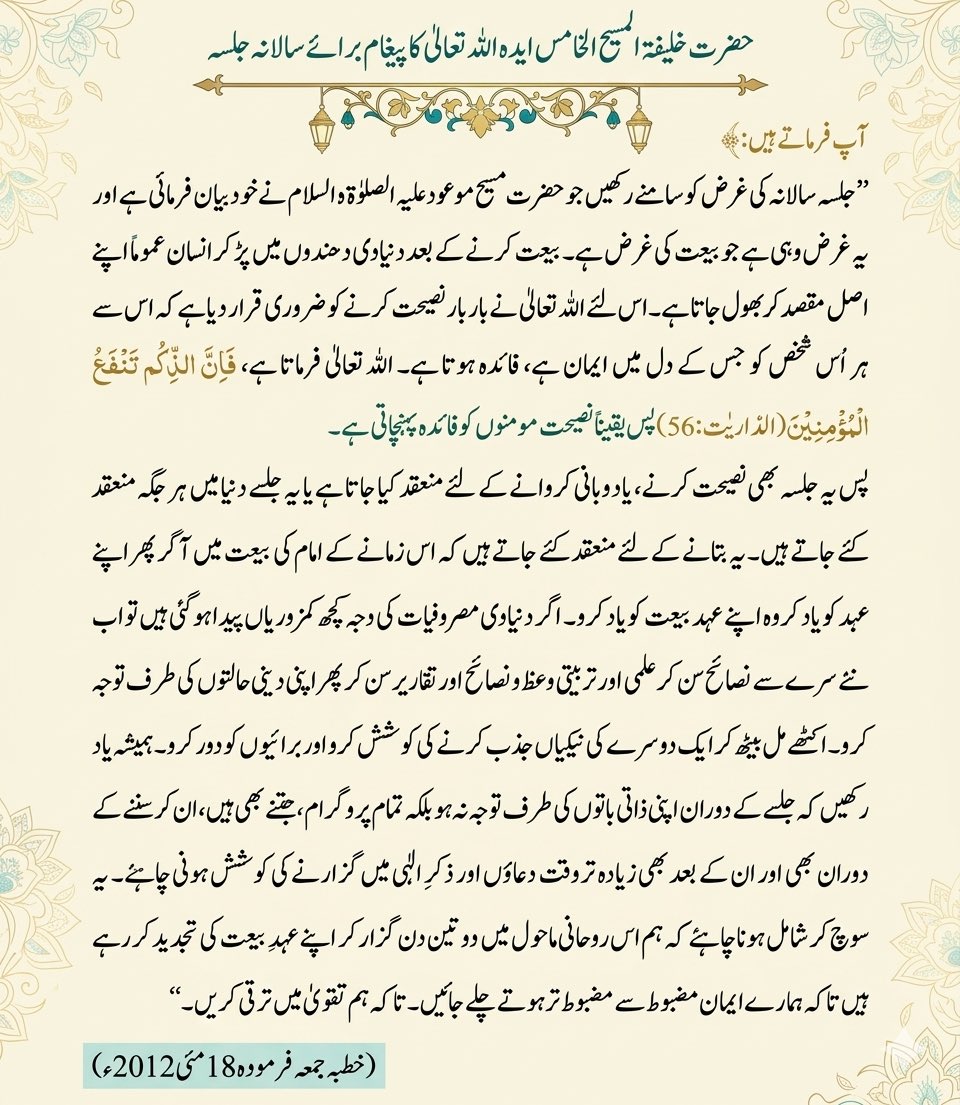 حضرت خلیفۃ المسیح الخامس ایدہ اللہ تعالیٰ کا پیغام برائے سالانہ جلسہ
آپ فرماتے ہیں:
”جلسہ سالانہ کی غرض کو سامنے رکھیں جو حضرت مسیح موعود علیہ الصلوٰۃ السلام نے خود بیان فرمائی ہے اور
یہ غرض وہی ہے جو بیعت کی غرض ہے۔ بیعت کرنے کے بعد دنیادی دھندوں میں پڑ کر انسان عموماً اپنے
اصل مقصد کر بھول جاتا ہے۔ اس لئے اللہ تعالیٰ نے بار بار نصیحت کرنے کو ضروری قرار دیا ہے کہ اس سے
ہر اُس شخص کو جس کے دل میں ایمان ہے، فائدہ ہوتا ہے۔ اللہ تعالیٰ فرماتا ہے، فَاِنَّ الذِّكُم تَنْفَعُ
الْمُؤْمِنِيْنَ (الذاریٰت:56) پس یقیناً نصیحت مومنوں کو فائدہ پہنچاتی ہے۔
پس یہ جلسہ بھی نصیحت کرنے، یاد وہانی کروانے کے لئے منعقد کیا جاتا ہے یا یہ جلسے دنیا میں ہر جگہ منعقد
کئے جاتے ہیں۔ یہ بتانے کے لئے منعقد کئے جاتے ہیں کہ اس زمانے کے امام کی بیعت میں آگر پھر اپنے
عہد کو یاد کرو وہ اپنے عہد بیعت کو یاد کرو۔ اگر دنیاوی مصروفیات کی وجہ کچھ کمزوریاں پیدا ہوگئی ہیں تو اب
نئے سرے سے نصائح سن کر علمی اور تربیتی وعظ و نصائح اور تقاریر سن کر پھر اپنی دینی حالتوں کی طرف توجہ
کرو۔ اکٹھے مل بیٹھ کر ایک دوسرے کی نیکیاں جذب کرنے کی کوشش کرو اور برائیوں کو دور کرو۔ ہمیشہ یاد
رکھیں کہ جلسے کے دوران اپنی ذاتی باتوں کی طرف توجہ نہ ہو بلکہ تمام پروگرام، جتنے بھی ہیں، ان کر سننے کے
دوران بھی اور ان کے بعد بھی زیادہ تر وقت دعاؤں اور ذکرِ الٰہی میں گزارنے کی کوشش ہونی چاہئے۔ یہ
سوچ کر شامل ہونا چاہئے کہ ہم اس روحانی ماحول میں دو تین دن گزار کر اپنے عہدِ بیعت کی تجدید کر رہے
ہیں تا کہ ہمارے ایمان مضبوط سے مضبوط تر ہوتے چلے جائیں۔ تا کہ ہم تقویٰ میں ترقی کریں۔“
(خطبہ جمعہ فرمودہ 18 مئی 2012ء)